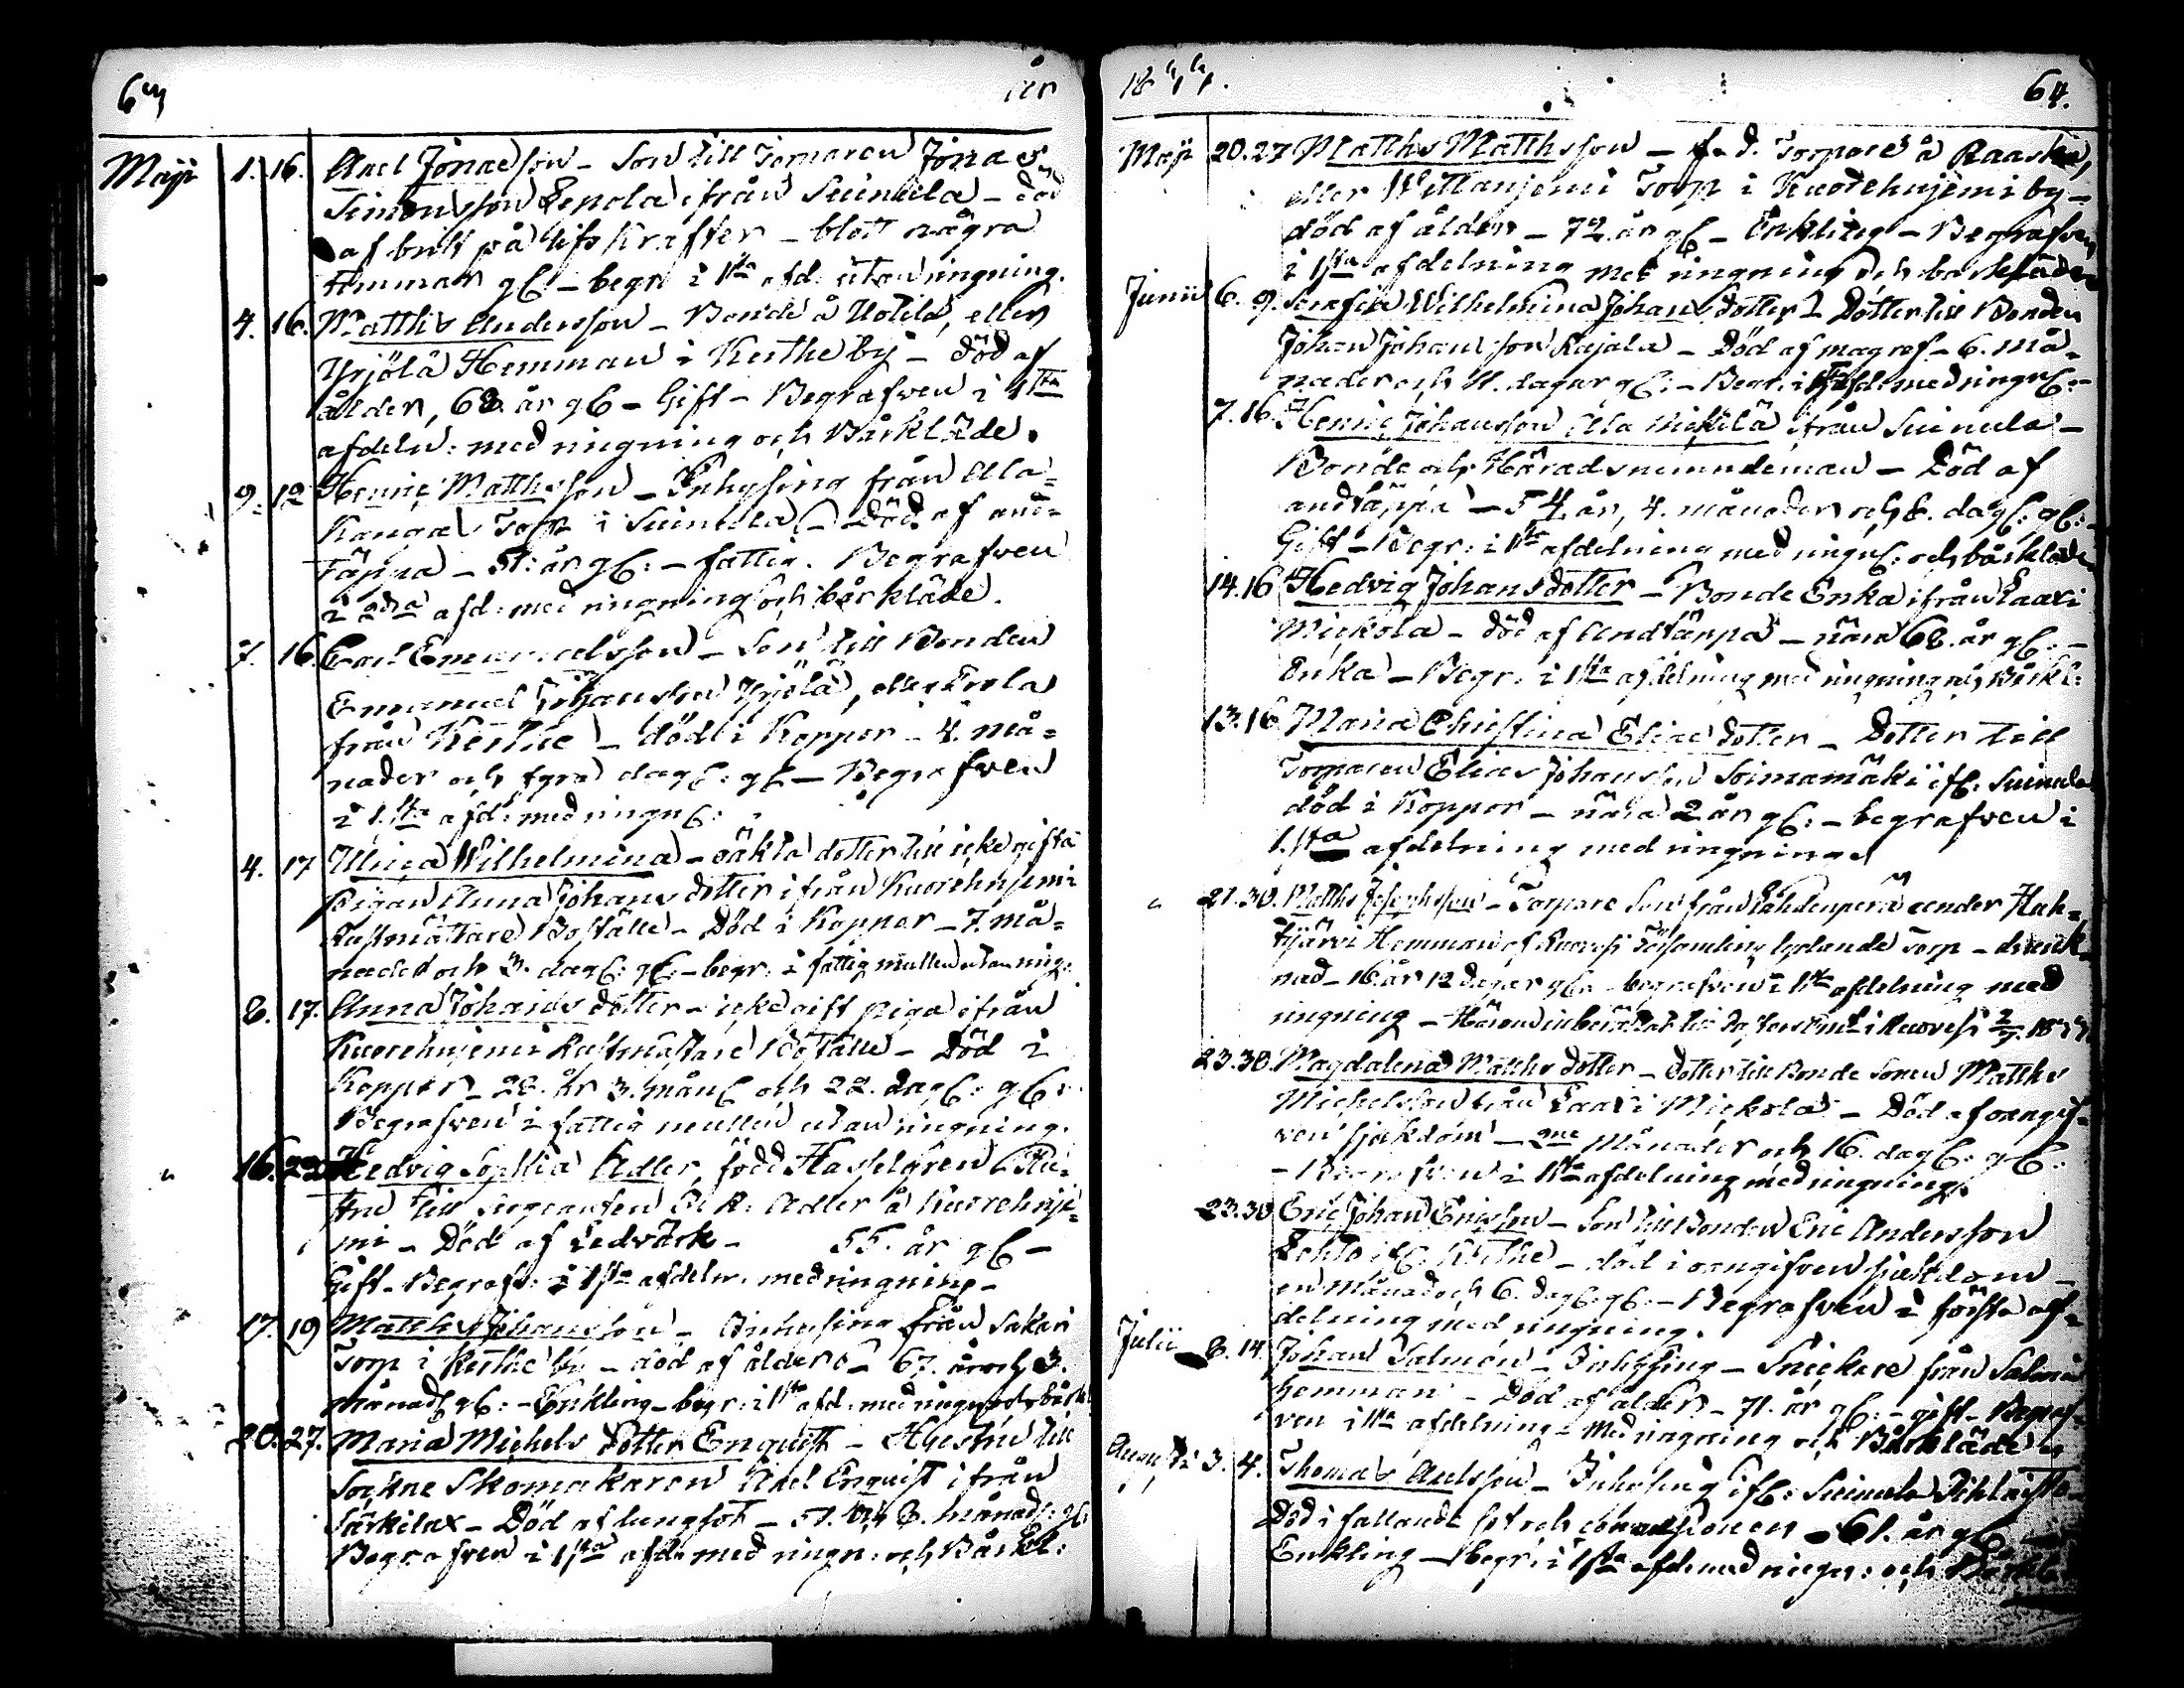 63 år
Maji 1. 16. Axel Jonaesson - Son till Torparen Jonas
Simonsson Lepola ifrån Suinula - död
af brist på lifs krafter - blott några
timmar gl. - begr. i 1sta afd. utan ringning.
4. 16. Matths Andersson - Bonde å Uotila, eller
Yrjölä Hemman i Keithe by - död af
ålder, 68. år gl - Gift - Begrafven i 1sta
afdeln: med ringning och Bårkläde.
9. 12 Henric Matthsson - Inhysing från Ala-
Kangas Torp i Suinula - Död af and-
täppa - 51. år gl: - fattig. Begrafven
i 2dra afd: med ringning och bårkläde.
7. 16. Carl Emanuelsson - Son till Bonden
Emanuel Johansson Yrjölä, eller
från Keithe - död i Koppor - 4. må-
nader och fyra dag: gl - Begrafven
i 1.sta afd: med ringn:
4. 17 Ulrica Wilhelmina - oäkta dotter till icke gifta
Pigan Anna Johans dotter ifrån Kuorehnjemi
Rustmästare Boställe - Död i Koppor - 7. må-
nader och 3. dag: gl: - begr. i fattig mullen utan ring:
8. 17. Anna Johans dotter - icke gift piga ifrån
Kuorehnjemi Rustmästare Boställe - Död i
Koppor - 28. år 3. mån: och 22. dag: gl:
Begrafven i fattig mullen utan ringning.
16. Hedvig Sophia Adler, född Hasselgren Hu-
stru till Sergeanten Adler å Kuorehnje-
mi - Död af Ledvärk - 55. år gl -
Gift - Begrafv: i 1sta afdeln. med ringning -
17. 19 Matths Johansson - Inhysing från Sakari
Torp i Keithe by - död af ålder - 67. år och 3.
månad: gl: - Enkling - begr: i 1sta afd: med ringn och bårkl
20. 27. Maria Michels dotter Enquist - Hustru till
Sockne Skomakaren Axel Enquist ifrån
Särkilax - Död af lungsot - 51. år 8. månad: gl:
Begrafven i 1sta afd: med ringn: och Bårkl:
1844. 64.
Maji 20. 27 Matths Matthsson - f.d. Torpare å
eller Torp i Kuorehnjemi by -
död af ålder - 72. år gl - Enkling - Begrafven
i 1sta afdelning med ringning och bårkläde
Junii 6. 9. Serafia Wilhelmina Johans dotter - Dotter till Bonden
Johan Johansson Rajala - Död af magref - 6. må-
nader och 11. dagar gl: - Begr: i 1sta afd: med ringn:
7. 16. Henric Johansson Ala Mickilä ifrån Suinula -
Bonde och Häradsnämndeman - Död af
andtäppa - 54 år, 4. månader och 8. dag: gl:
Gift - Begr: i 1sta afdelning med ringn: och bårkläde
14. 16 Hedvig Johans dotter - Bonde Enka ifrån Laari
Mickola - död af Andtäppa - nära 68. år gl: -
Enka - Begr: i 1sta afdelning med ringning och Bårkl:
13. 16 Maria Christina Eliae dotter - Dotter till
Torparen Elias Johansson Soimamäki if: Suinula
död i Koppor - nära 2 år gl: - begrafven i
1.sta afdelning med ringning
21. 30. Matths Josephsson - Torpare Son från Lahdenperä under Hah-
tijärvi Hemman af Ruovesi Församling lydande Torp - drunk-
nad - 16. år 12 dagar gl: - begrafven i 1sta afdelning med
ringning - i Ruovesi
23. 30. Magdalena Matths dotter - Dotter till Bonde Sonen Matths
Michelsson från Laari Mickola - Död af oangif-
ven sjukdom - 2ne Månader och 16. dag: gl:
- Begrafven i 1sta afdelning med ringning.
23. 30 Eric Johan Ericsson - Son till Bonden Eric Andersson
Lehto if: Keithe - död i oangifven sjukdom -
en månad och 6. dag: gl: - Begrafven i första af-
delning med ringning.
Julii 8. 14. Johan Salmén - Inhysing - Snickare från Salmi
hemman - Död af ålder - 71. år gl: - gift - Begraf-
ven i 1sta afdelning - med ringning och Bårkläde
Augusti 3. 4. Thomas Axelsson - Inhysing if: Suinula
Död i fallande sot och convulsioner - 61. år gl -
Enkling - begr: i 1sta afd: med ringn: och Bårkl